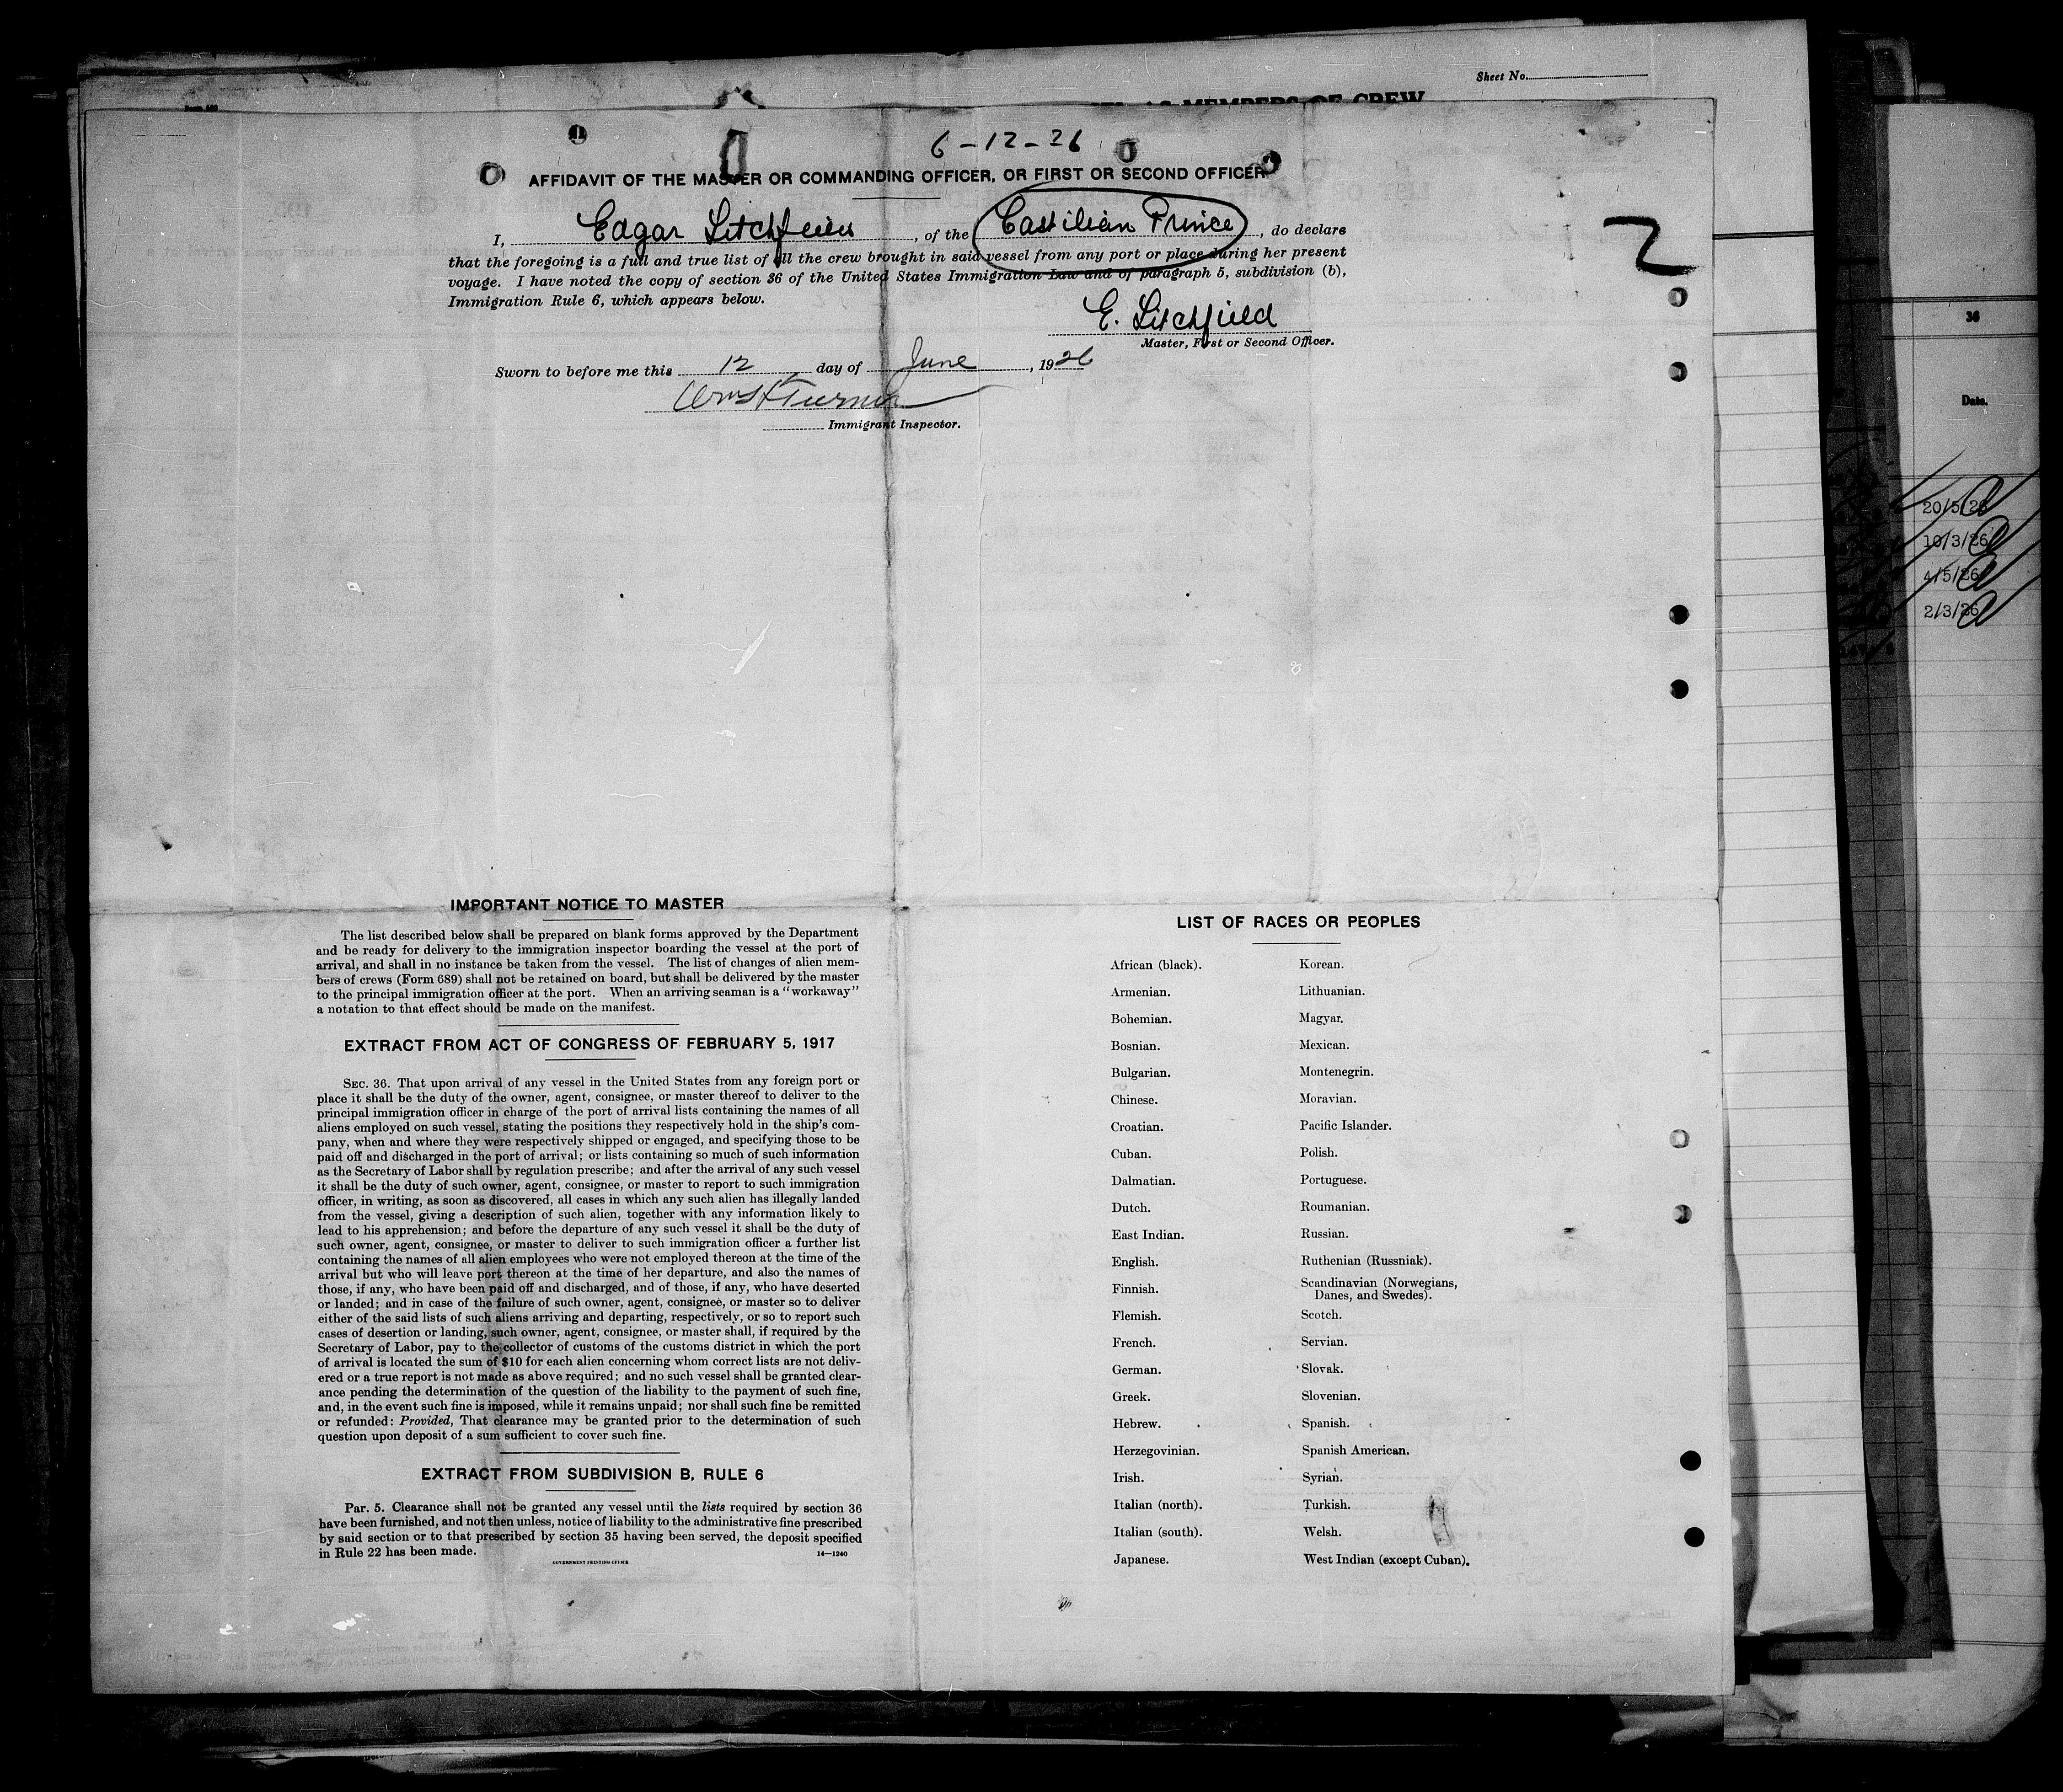 Sheet No.
AS MEMBERS OF CREW
6-12-26
AFFIDAVIT OF THE MASTER OR COMMANDING OFFICER, OR FIRST OR SECOND OFFICER
I, Edgar Litchfield, of the Castilian Prince, do declare
that the foregoing is a full and true list of all the crew brought in said vessel from any port or place during her present
voyage. I have noted the copy of section 36 of the United States Immigration Law and of paragraph 5, subdivision (b),
Immigration Rule 6, which appears below.
2
E. Litchfield
Master, First or Second Officer.
Sworn to before me this 12 day of June, 1926
Turner
Immigrant Inspector.
36
Date.
20/5/26
10/3/26
4/5/26
2/3/26
IMPORTANT NOTICE TO MASTER
The list described below shall be prepared on blank forms approved by the Department
and be ready for delivery to the immigration inspector boarding the vessel at the port of
arrival, and shall in no instance be taken from the vessel. The list of changes of alien mem-
bers of crews (Form 689) shall not be retained on board, but shall be delivered by the master
to the principal immigration officer at the port. When an arriving seaman is a "workaway"
a notation to that effect should be made on the manifest.
EXTRACT FROM ACT OF CONGRESS OF FEBRUARY 5, 1917
SEC. 36. That upon arrival of any vessel in the United States from any foreign port or
place it shall be the duty of the owner, agent, consignee, or master thereof to deliver to the
principal immigration officer in charge of the port of arrival lists containing the names of all
aliens employed on such vessel, stating the positions they respectively hold in the ship's com-
pany, when and where they were respectively shipped or engaged, and specifying those to be
paid off and discharged in the port of arrival; or lists containing so much of such information
as the Secretary of Labor shall by regulation prescribe; and after the arrival of any such vessel
it shall be the duty of such owner, agent, consignee, or master to report to such immigration
officer, in writing, as soon as discovered, all cases in which any such alien has illegally landed
from the vessel, giving a description of such alien, together with any information likely to
lead to his apprehension; and before the departure of any such vessel it shall be the duty of
such owner, agent, consignee, or master to deliver to such immigration officer a further list
containing the names of all alien employees who were not employed thereon at the time of the
arrival but who will leave port thereon at the time of her departure, and also the names of
those, if any, who have been paid off and discharged, and of those, if any, who have deserted
or landed; and in case of the failure of such owner, agent, consignee, or master so to deliver
either of the said lists of such aliens arriving and departing, respectively, or so to report such
cases of desertion or landing, such owner, agent, consignee, or master shall, if required by the
Secretary of Labor, pay to the collector of customs of the customs district in which the port
of arrival is located the sum of $10 for each alien concerning whom correct lists are not deliv-
ered or a true report is not made as above required; and no such vessel shall be granted clear-
ance pending the determination of the question of the liability to the payment of such fine,
and, in the event such fine is imposed, while it remains unpaid; nor shall such fine be remitted
or refunded: Provided, That clearance may be granted prior to the determination of such
question upon deposit of a sum sufficient to cover such fine.
EXTRACT FROM SUBDIVISION B, RULE 6
Par. 5. Clearance shall not be granted any vessel until the lists required by section 36
have been furnished, and not then unless, notice of liability to the administrative fine prescribed
by said section or to that prescribed by section 35 having been served, the deposit specified
in Rule 22 has been made.
14—1240
GOVERNMENT PRINTING OFFICE
LIST OF RACES OR PEOPLES
African (black).
Armenian.
Bohemian.
Bosnian.
Bulgarian.
Chinese.
Croatian.
Cuban.
Dalmatian.
Dutch.
East Indian.
English.
Finnish.
Flemish.
French.
German.
Greek.
Hebrew.
Herzegovinian.
Irish.
Italian (north).
Italian (south).
Japanese.
Korean.
Lithuanian.
Magyar.
Mexican.
Montenegrin.
Moravian.
Pacific Islander.
Polish.
Portuguese.
Roumanian.
Russian.
Ruthenian (Russniak).
Scandinavian (Norwegians,
Danes, and Swedes).
Scotch.
Servian.
Slovak.
Slovenian.
Spanish.
Spanish American.
Syrian.
Turkish.
Welsh.
West Indian (except Cuban).